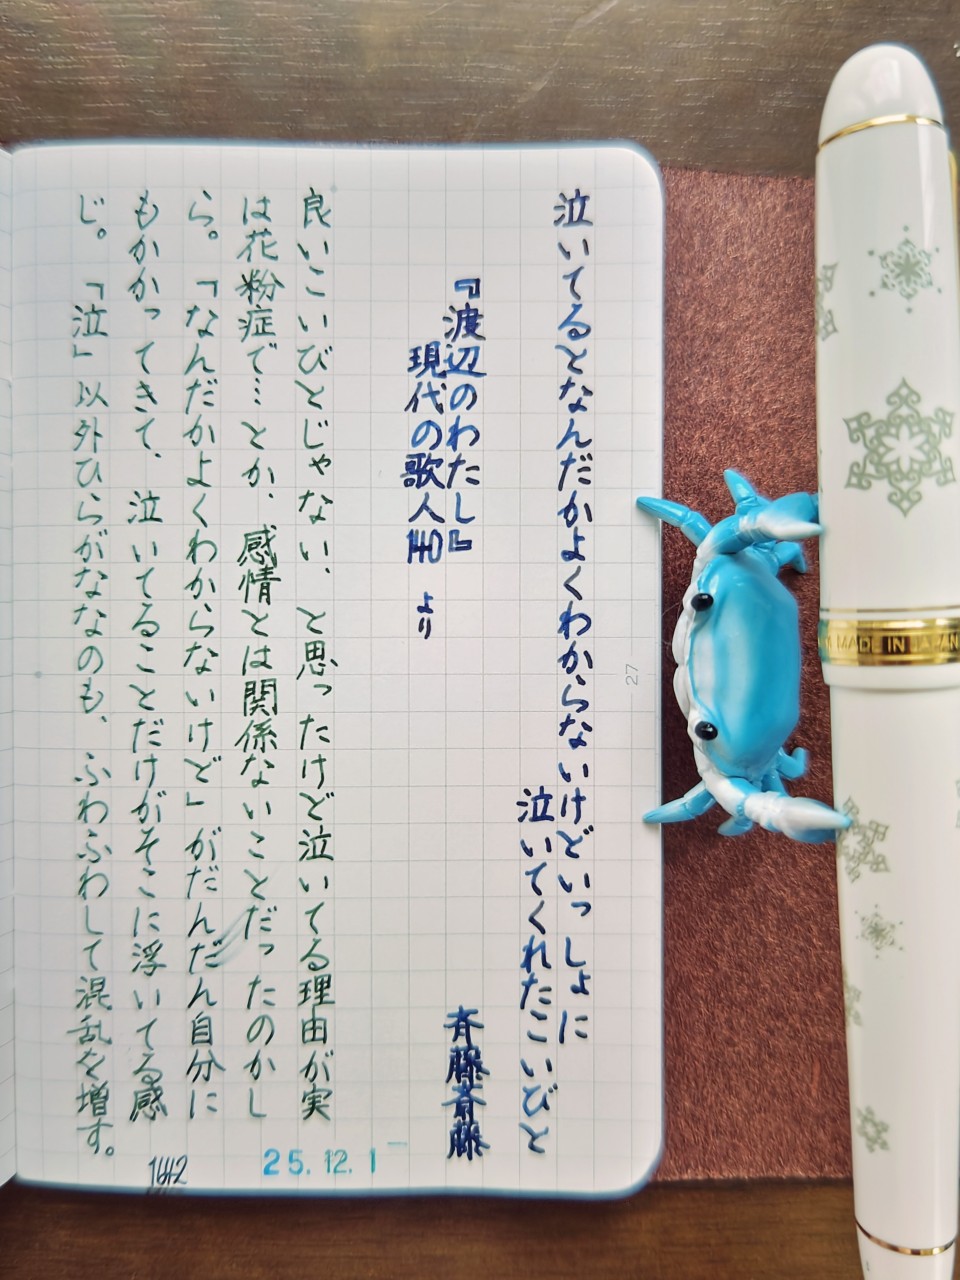 泣いてるとなんだかよくわからないけどいっしょに
泣いてくれたこいびと
『渡辺のわたし』
斉藤斎藤
現代の歌人140 より
良いこいびとじゃない、と思ったけど泣いてる理由が実
は花粉症で…とか、感情とは関係ないことだったのかし
ら。「なんだかよくわからないけど」がだんだん自分に
もかかってきて、泣いてることだけがそこに浮いてる感
じ。「泣」以外ひらがななのも、ふわふわして混乱を増す。
1642
25.12.1
27
MADE IN JAPAN